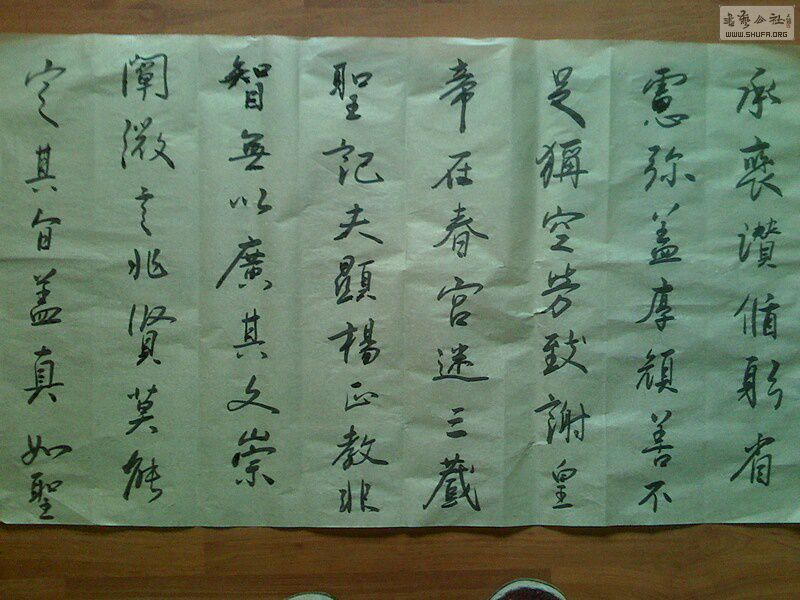 承褒讃循躬省
慮弥益厚顔善不
足稱空勞致謝皇
帝在春宮述三藏
聖記夫顯楊正教非
智無以廣其文崇
闡微言非賢莫能
定其旨盖真如聖
書藝公社
WWW.SHUFA.ORG